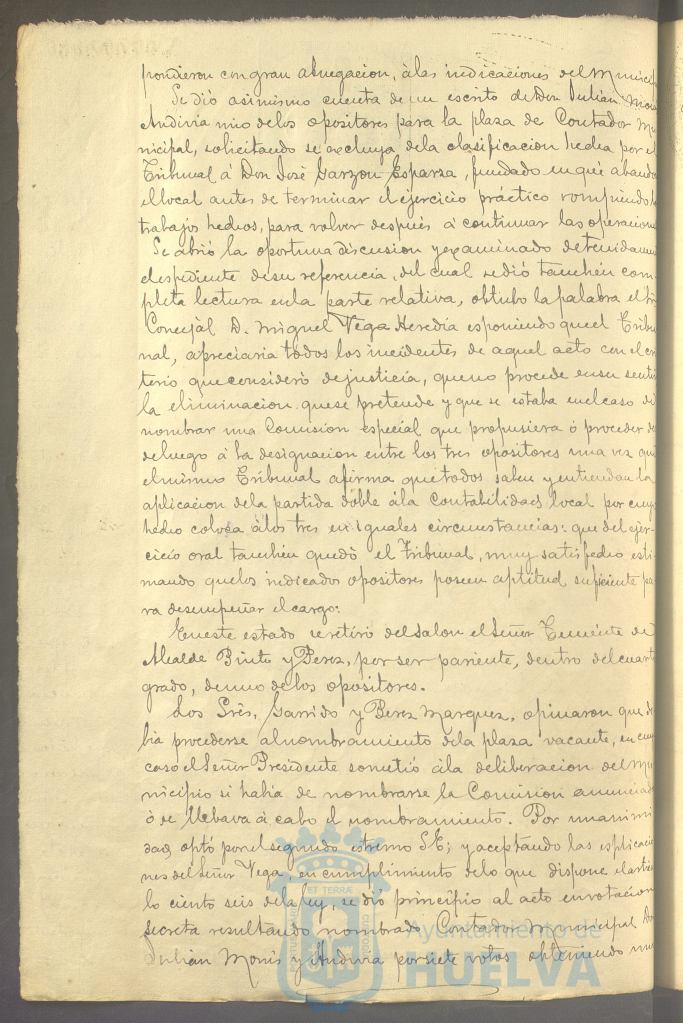 pondieron con gran abnegacion, à las indicaciones del Munici
Se diò asimismo cuenta de un escrito de Don Julian Moni
Andivia uno de los opositores para la plaza de Contador Mu
nicipal, solicitando se escluya de la clasificacion hecha por el
Tribunal á Don José Garzon Esparza, fundado en que abando
el local antes de terminar el ejercicio práctico rompiendo
trabajos hechos, para volver despues á continuar las operacione
Se abrió la oportuna discusion y examinado detenidamen
el espediente de su referencia, del cual se dió tambien com
pleta lectura en la parte relativa, obtubo la palabra el
Concejàl D. Miguel Vega Heredia esponiendo que el Tribu
nal, apreciaria todos los incidentes de aquel acto con el cri
terio que considerò de justicia, que no procede en su senti
la eliminacion que se pretende y que se estaba en el caso de
nombrar una Comision especial que propusiera ò proceder des
de luego á la designacion entre los tres opositores una vez que
el mismo Tribunal afirma que todos saben y entienden la
aplicacion de la partida doble á la Contabilidad local por cuyo
hecho coloca á los tres en iguales circunstancias: que del ejer-
cicio oral tambien quedó el Tribunal, muy satisfecho esti
mando que los indicados opositores poseen aptitud suficiente pa
ra desempeñar el cargo:
En este estado se retiró del salon el Señor Teniente de
Alcalde Pinto y Perez, por ser pariente, dentro del cuarto
grado, de uno de los opositores.
Los Srês, Garrido y Perez Marquez, opinaron que de
bia procederse al nombramiento de la plaza vacante, en cuyo
caso el Señor Presidente sometió á la deliberacion del Mu
nicipio si habia de nombrarse la Comision anunciada
ò se llebava á cabo el nombramiento. Por unanimi
dad, optó por el segundo estremo S.E; y aceptando las esplicacio
nes del Señor Vega, en cumplimiento de lo que dispone el articu
lo ciento seis de la ley, se diò principio al acto en votacion
secreta resultando nombrado Contador Municipal Don
Julian Monis y Andivia por siete votos obteniendo uno
ET TERRÆ
CUSTODIA
Ayuntamiento de
HUELVA